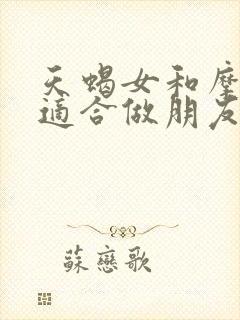 天蝎女和摩
适合做朋友
蘇戀歌